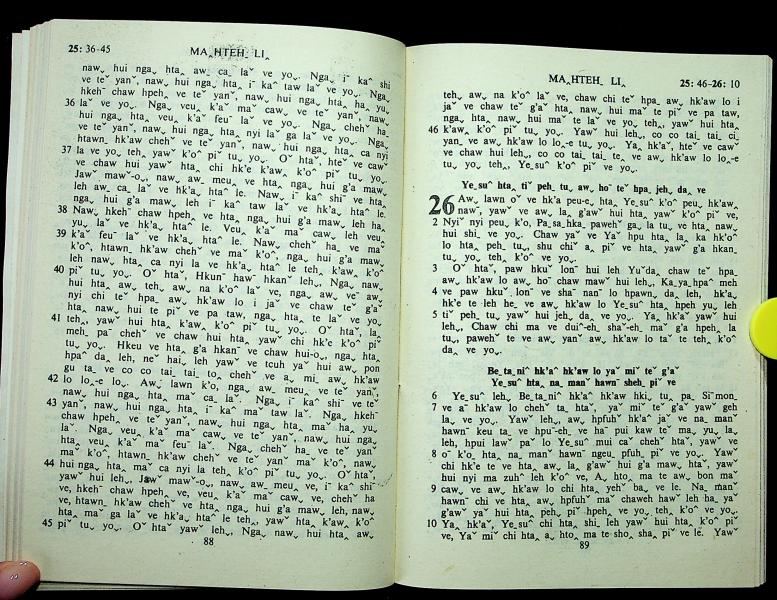 25: 36-45
MA‸HTEH_ LI‸
naw, hui nga˯ hta‸ aw_ ca_ la˅ ve yo˯. Nga˯ i¯ ka^ shi
ve te˅ yan˅, naw˯ hui nga˯ hta‸ i¯ ka^ taw la˅ ve yo˯. Nga˯
hkeh¯ chaw hpeh˯ ve te˅ yan˅, naw˯ hui nga˯ hta‸ ha‸ yu‸
36 la˅ ve yo˯. Nga˯ veu‸ k'a˅ ma˅ caw˯ ve te˅ yan˅, naw˯
hui nga˯ hta‸ veu‸ k'a˅ feu¯ la˅ ve yo˯. Nga˯ cheh˅ ha‸
ve te˅ yan˅, naw˯ hui nga˯ hta‸ nyi la˅ ga‸ la˅ ve yo˯. Nga˯
htawn‸ hk'aw cheh˅ ve te˅ yan˅, naw˯ hui nga˯ hta‸ ca nyi
37 la ve yo˯, teh‸ yaw˅ k'o^ pi˅ tu‸ yo˯. O˅ hta˅, hte˅ ve caw˅
ve chaw hui yaw˅ hta‸ chi hk'e k'aw‸ k'o^ pi˅ tu‸ yo˯.
Jaw˅ maw˅-o˯, naw˯ aw˯ meu‸ ve hta‸, nga˯ hui g'a maw‸
leh aw_ ca_ la˅ ve hk'a‸ hta^ le. Naw˯ i¯ ka^ shi˅ ve hta‸
nga˯ hui g'a maw‸ leh i¯ ka^ taw la˅ ve hk'a‸ hta^ le.
38 Naw˯ hkeh¯ chaw hpeh˯ ve hta‸ nga˯ hui g'a maw‸ leh ha‸
yu‸ la˅ ve hk'a‸ hta^ le. Veu‸ k'a˅ ma˅ caw˯ leh veu‸
39 k'a˅ feu¯ la˅ ve hk'a‸ hta^ le. Naw˯ cheh˅ ha‸ ve ma˅
k'o^, htawn‸ hk'aw cheh˅ ve ma˅ k'o^, nga˯ hui g'a maw‸
leh naw˯ hta‸ ca nyi la˅ ve hk'a‸ hta^ le teh‸ k'aw‸ k'o^
40 pi˅ tu‸ yo˯. O˅ hta˅, Hkun˅ haw˅ hkan˅ leh˯, Nga˯ naw˯
hui hta‸ aw˯ teh‸ aw˯ na k'o^ la˅ ve, nga˯ aw˯ ve¯ aw˯
nyi chi te˅ hpa‸ aw˯ hk'aw lo i ja˅ ve chaw te˅ g'a˅
hta‸ naw˯ hui te pi˅ ve pa taw, nga˯ hta‸ te la˅ ve yo˯,
41 teh‸, yaw˅ hui hta‸ k'aw‸ k'o^ pi˅ tu‸ yo˯. O˅ hta˅, la˯
meh‸ pa˅ cheh˅ ve chaw hui hta‸ yaw˅ chi hk'e k'o^ pi˅
tu‸ yo˯. Hkeu ve hta‸ g'a hkan¯ ve chaw hui-o˯, nga˯ hta‸
hpa^ da‸ leh, ne˅ hai˯ leh yaw˅ ve tcuh ya˅ hui aw˯ pon
gu ta‸ ve co co tai_ tai_ to‸ cheh˅ ve a˯ mi_ aw˯ hk'aw
42 lo lo‸-e lo˯. Aw˯ lawn k'o, nga˯ aw˯ meu‸ ve te˅ yan˅,
naw˯ hui nga˯ hta‸ ma˅ ca_ la˅. Nga˯ i¯ ka^ shi˅ ve te˅
43 yan˅, naw˯ hui nga˯ hta‸ i¯ ka^ ma˅ taw la˅. Nga˯ hkeh¯
chaw hpeh˯ ve te˅ yan˅, naw˯ hui nga˯ hta‸ ma˅ ha‸ yu‸
la˅. Nga˯ veu‸ k'a˅ ma˅ caw˯ ve te˅ yan˅, naw˯ hui nga˯
hta‸ veu‸ k'a˅ ma˅ feu¯ la˅. Nga˯ cheh˅ ha‸ ve te˅ yan˅
ma˅ k'o^, htawn‸ hk'aw cheh˅ ve te˅ yan˅ ma˅ k'o^, naw˯
44 hui nga˯ hta‸ ma˅ ca nyi la teh‸ k'o^ pi˅ tu‸ yo˯. O˅ hta˅,
yaw˅ hui leh˯ Jaw˅ maw˅-o˯, naw˯ aw˯ meu‸ ve, i¯ ka^ shi˅
ve, hkeh¯ chaw hpeh˯ ve, veu‸ k'a˅ ma˅ caw˯ ve, cheh˅ ha
ve, htawn‸ hk'aw cheh˅ ve hta‸ nga˯ hui g'a maw‸ leh, naw˯
hta‸ ma˅ ga‸ la˅ ve hk'a‸ hta^ le teh‸, yaw˅ hta‸ k'aw‸ k'o^
45 pi˅ tu‸ yo˯. O˅ hta˅ yaw˅ leh˯, Nga˯ naw˯ hui hta‸ aw˯
88
MA‸HTEH_ LI‸
25: 46-26: 10
teh‸ aw˯ na k'o^ la˅ ve, chaw chi te˅ hpa‸ aw˯ hk'aw lo i
ja˅ ve chaw te˅ g'a˅ hta‸ naw˯ hui ma˅ te pi˅ ve pa taw,
nga˯ hta‸ naw˯ hui ma˅ te la˅ ve yo˯, teh‸, yaw˅ hui hta‸
46 k'aw‸ k'o^ pi˅ tu‸ yo˯. Yaw˅ hui leh˯, co co tai_ tai_ ci‸
yan_ ve aw˯ hk'aw lo lo‸-e tu‸ yo˯. Ya‸ hk'a˅, hte˅ ve caw˅
ve chaw hui leh˯, co co tai_ tai_ te‸ ve aw˯ hk'aw lo lo‸-e
tu‸ yo˯, teh‸, Ye‸su^ k'o^ pi˅ ve yo˯.
Ye‸su^ hta‸ ti˅ peh‸ tu‸ aw˯ ho¯ te˅ hpa‸ jeh‸ da‸ ve
26 Aw˯ lawn o˅ ve hk'a peu-e, hta‸ Ye‸su^ k'o^ peu‸ hk'aw˯
naw˅, yaw˅ ve aw˯ la‸ g'aw˅ hui hta‸ yaw˅ k'o^ pi˅ ve,
2 Nyi˅ nyi peu‸ k'o, Pa_sa_hka_ paweh˅ ga‸ la tu‸ ve hta‸ naw˯
hui shi‸ ve yo˯. Chaw ya˅ ve Ya˅ hpu hta‸ la‸ ka hk'o^
lo hta‸ peh‸ tu‸, shu chi˅ a‸ pi˅ ve hta‸ yaw˅ g'a hkan‸
tu‸ yo˯ teh‸ k'o^ ve yo˯.
3 O˅ hta˅, paw hku˅ lon¯ hui leh Yu˅da_ chaw te˅ hpa_
aw˯ hk'aw lo aw˯ ho¯ chaw maw˅ hui leh˯, Ka_ya_hpa^ meh
4 ve paw hku˅ lon¯ ve sha˅ nan˅ lo hpawn_ da‸ leh, hk'a‸
hk'e te leh he˯ ve aw˯ hk'aw lo Ye‸su^ hta‸ hpeh yu‸ leh
5 ti˅ peh‸ tu‸ yaw˅ hui jeh‸ da‸ ve yo˯. Ya‸ hk'a˅ yaw˅ hui
leh˯, Chaw chi ma ve dui^-eh˯ sha˅-eh˯ ma˅ g'a hpeh‸ la
tu‸, paweh˅ te ve aw˯ yan˅ aw˯ hk'aw lo ta˅ te teh‸ k'o^
da‸ ve yo˯.
Be_ta_ni^ hk'a^ hk'aw lo ya˅ mi˅ te˅ g'a˅
Ye‸su^ hta‸ na_man˅ hawn˅ sheh‸ pi˅ ve
6 Ye‸su^ leh˯, Be_ta_ni^ hk'a^ hk'aw hki‸ tu‸ pa_ Si˅mon_
7 ve a˅ hk'aw lo cheh˅ ta‸ hta˅, ya˅ mi˅ te˅ g'a˅ yaw˅ geh
la‸ ve yo˯. Yaw˅ leh˯, aw˯ hpfuh˅ hk'a^ ja˅ ve na_man˅
hawn˅ keu ta‸ ve hpu¯-eh˯ ve ha˅ pui kaw te˅ ma‸ yu‸ la‸
leh, hpui law˅ pa˅ lo Ye‸su^ mui ca˅ cheh˅ hta˅, yaw˅ ve
8 o˅ k'o‸ hta‸ na_man˅ hawn˅ ngeu‸ pfuh‸ pi˅ ve yo˯. Yaw˅
chi hk'e te ve hta‸ aw˯ la‸ g'aw˅ hui g'a maw‸ hta˅, yaw˅
hui nyi ma zuh^ leh k'o^ ve, A‸ hto‸ ma te aw˯ bon ma˅
9 caw‸ ve aw˯ hk'aw lo chi hta‸ yeh˅ ba‸ ve le. Na_man˅
hawn˅ chi ve hta‸, aw˯ hpfuh˅ ma˅ chaweh haw˅ leh ha‸ ya˅
g'aw˅ ya˅ hui hta‸ peh‸ pi˅ hpeh‸ ve yo˯, teh‸ k'o^ ve yo˯.
10 Ya‸ hk'a˅, Ye‸su^ chi hta‸ shi‸ leh yaw˅ hui hta‸ k'o^ pi˅
ve, Ya˅ mi˅ chi hta‸ a‸ hto‸ ma te sho‸ sha‸ pi˅ ve le. Yaw˅
89